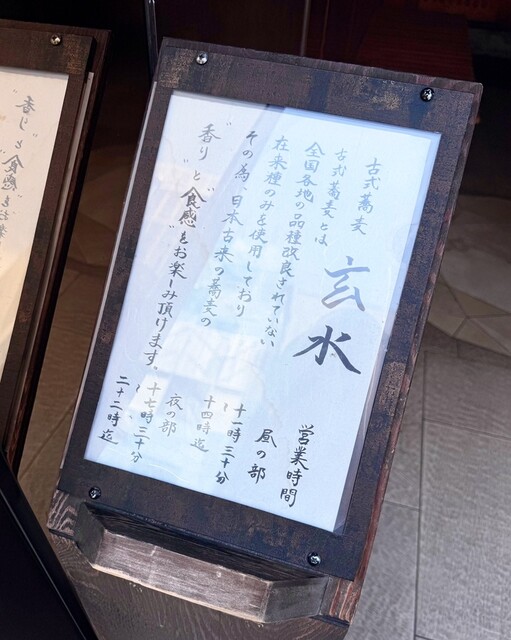 古式蕎麦
玄水
古式蕎麦とは
全国各地の品種改良されていない
在来種のみを使用しており
その為、日本古来の蕎麦の
"香り"と"食感"をお楽しみ頂けます。
営業時間
昼の部
十一時三十分
〜
十四時迄
夜の部
十七時三十分
〜
二十二時迄
"香り"と"食感"をお楽